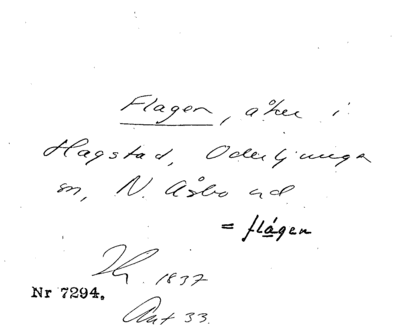 Flagen, åker i
Hagstad, Oderljunga
sn, N. Åsbo hd
= flágen
1837
Nr 7294.
Akt 33.